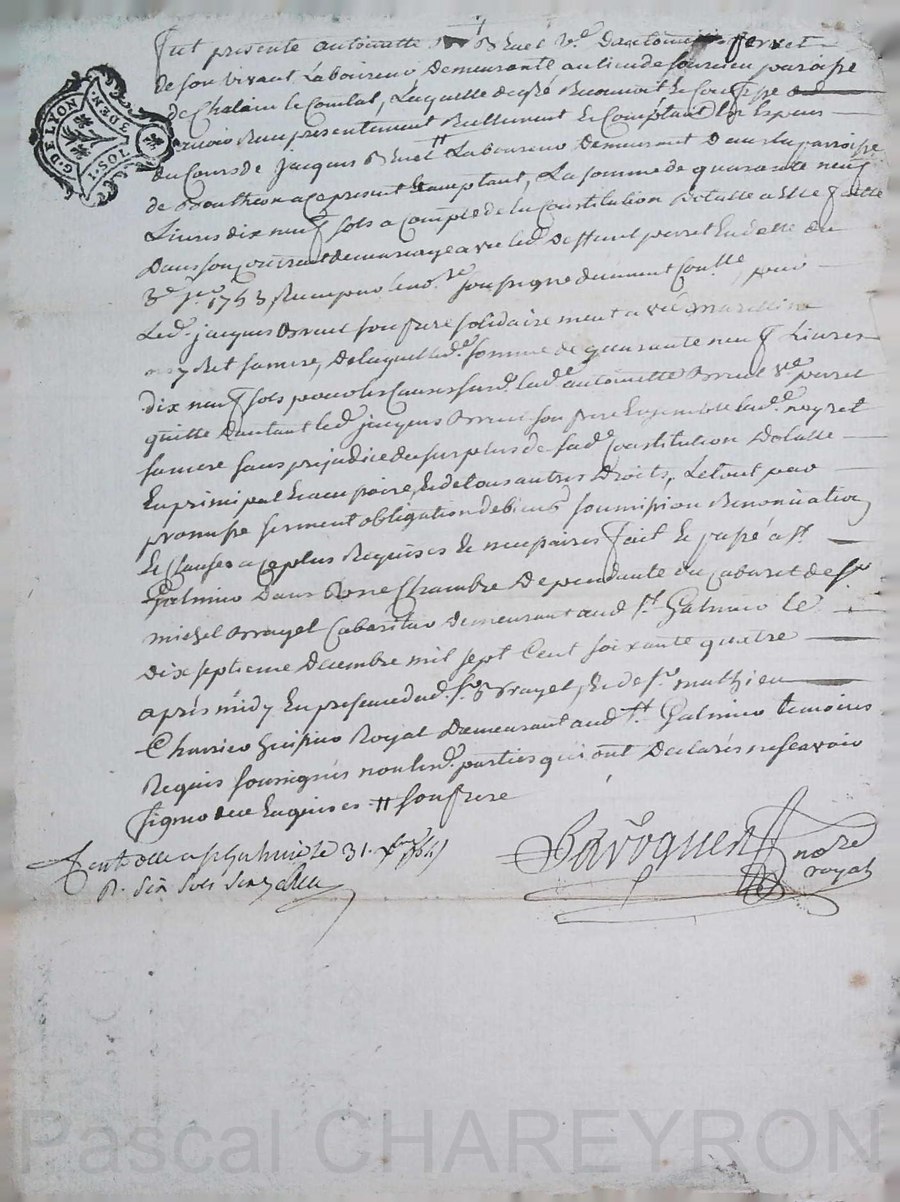 Fut presente antoinette Bruel v.e d'antoine perret
de son vivant Laboureur Demeurante au lieu de paroisse
de Chalain le Comtal, Laquelle de gré Reconnoit et Confesse
avoir Reçu presentement Reellement et Comptant En Especes
du Cours de Jacques Bruel # Laboureur demeurant Dans la parroisse
de Bouthéon a ce present acceptant, La somme de quarante neuf
Livres dix neuf sols a compte de la Constitution Dotalle a Elle faitte
Dans son Contrat de mariage avec led. Deffunt perret En datte du
3.e 1753 Reçu par le no.re soussigné duement Controllé, par
Led. jacques Bruel son frere solidairement avec
neyret sa mere, De laquelle d.e somme de quarante neuf Livres
dix neuf sols pour les Causes susd. lad.e antoinette Bruel v.e perret
quitte d'autant led. jacques Bruel son frere Ensemble lad.e neyret
sa mere sans prejudice du surplus de sad.e Constitution Dotalle
En principal et accessoire, et de tous autres Droits, Le tout par
promesse serment obligation de biens soumission Renonciation
et Clauses a ce plus Requises et necessaires fait et passé a s.t
Galmier Dans Une Chambre Dependante du Cabaret de s.r
michel Brayet Cabaretier demeurant aud. s.t Galmier le
Dix septieme Decembre mil sept Cent soixante quatre
après midy En presence dud. s.r Brayet, et de s.r mathieu
huissier Royal Demeurant aud. s.t Galmier temoins
Requis soussignés non lesd. parties qui ont Declarés ne scavoir
signer de ce Enquises # son frere
Controllé a s.t Galmier le 31. Xbre 1764
R. Six sols Six
no.re
royal
G. DE LYON
2. DEN.
1. SOL
Pascal CHAREYRON